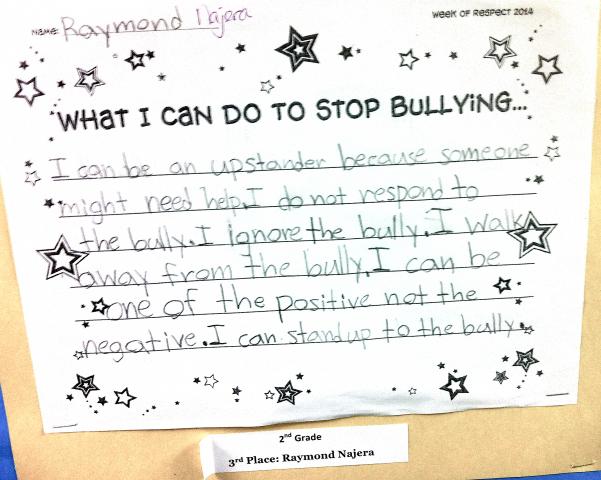 Name: Raymond Najera
Week of Respect 2014
WHAT I CAN DO TO STOP BULLYING...
I can be an upstander because someone
might need help. I do not respond to
the bully. I ignore the bully. I walk
away from the bully. I can be
one of the positive not the
negative. I can stand up to the bully.
2nd Grade
3rd Place: Raymond Najera